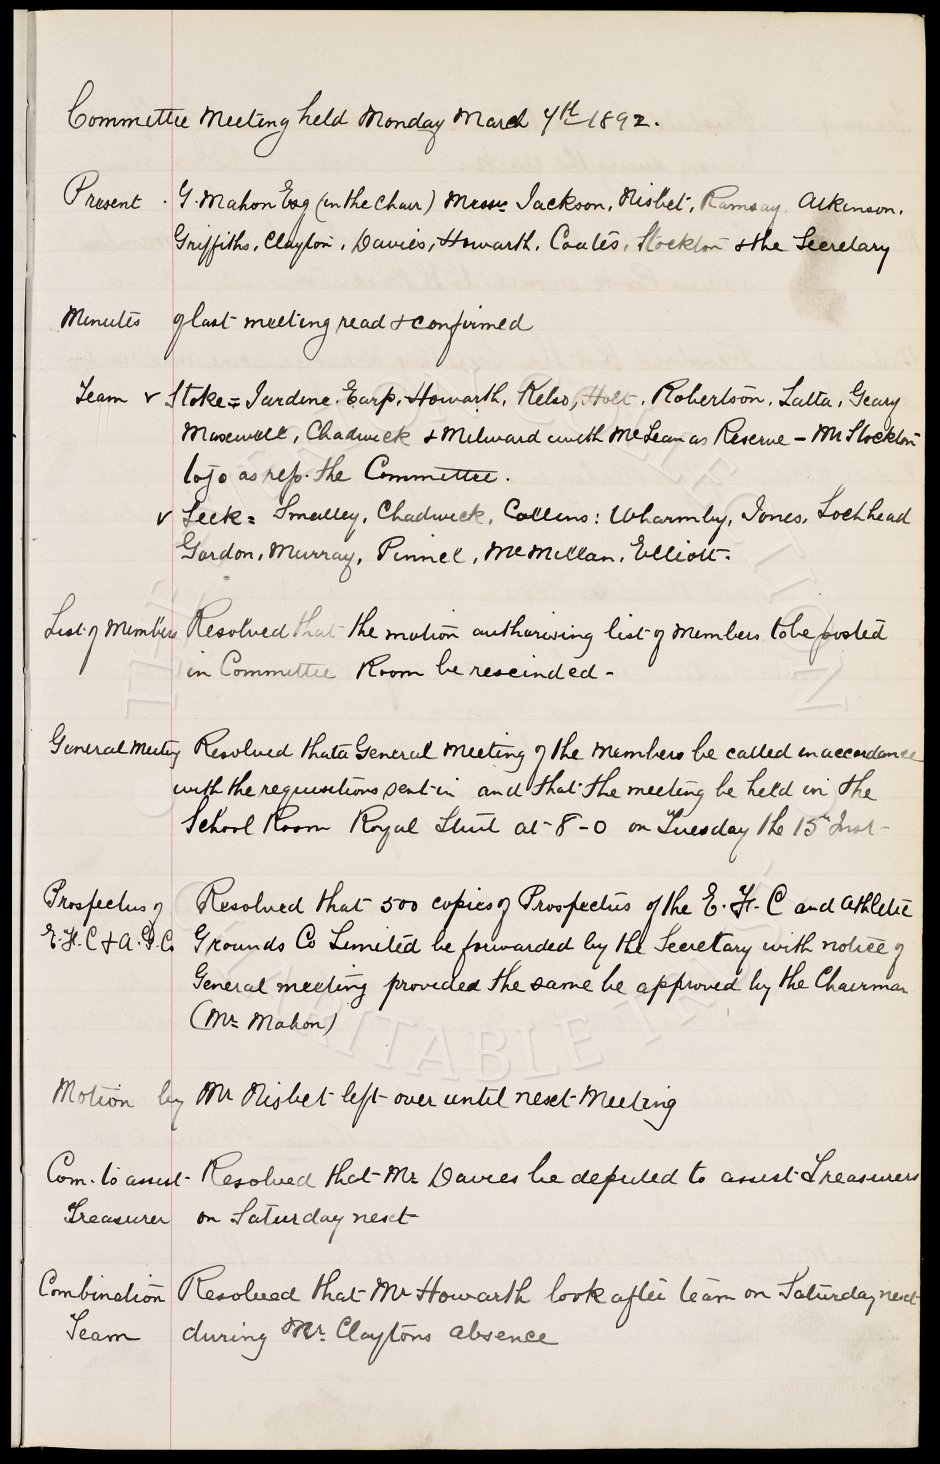 Committee Meeting held Monday March 7th 1892.
Present . G. Mahon Esq (in the Chair) Messrs Jackson, Nisbet, Ramsay, Atkinson,
Griffiths, Clayton, Davies, Howarth, Coates, Stockton & the Secretary
Minutes of last meeting read & confirmed
Team v Stoke = Jardine, Earp, Howarth, Kelso, Holt, Robertson, Latta, Geary
Maxwell, Chadwick & Milward with McLean as Reserve - Mr Stockton
to go as rep. the Committee.
v Leek = Smalley, Chadwick, Collins: Wharmby, Jones, Lochhead
Gordon, Murray, Pinnel, McMillan, Elliott.
List of Members Resolved that the motion authorising list of members to be posted
in Committee Room be rescinded -
General Meeting Resolved that a General Meeting of the Members be called in accordance
with the requisitions sent in and that the meeting be held in the
School Room Royal Street at 8-0 on Tuesday the 15th Inst -
Prospectus of Resolved that 500 copies of Prospectus of the E. F. C and Athletic
E. F. C & A. G. Co Grounds Co Limited be forwarded by the Secretary with notice of
General meeting provided the same be approved by the Chairman
(Mr Mahon)
Motion by Mr Nisbet left over until next Meeting
Com. to assist Resolved that Mr Davies be deputed to assist Treasurers
Treasurer on Saturday next
Combination Resolved that Mr Howarth look after team on Saturday next
Team during Mr. Claytons absence
THE COLLECTION
CHARITABLE TRUST